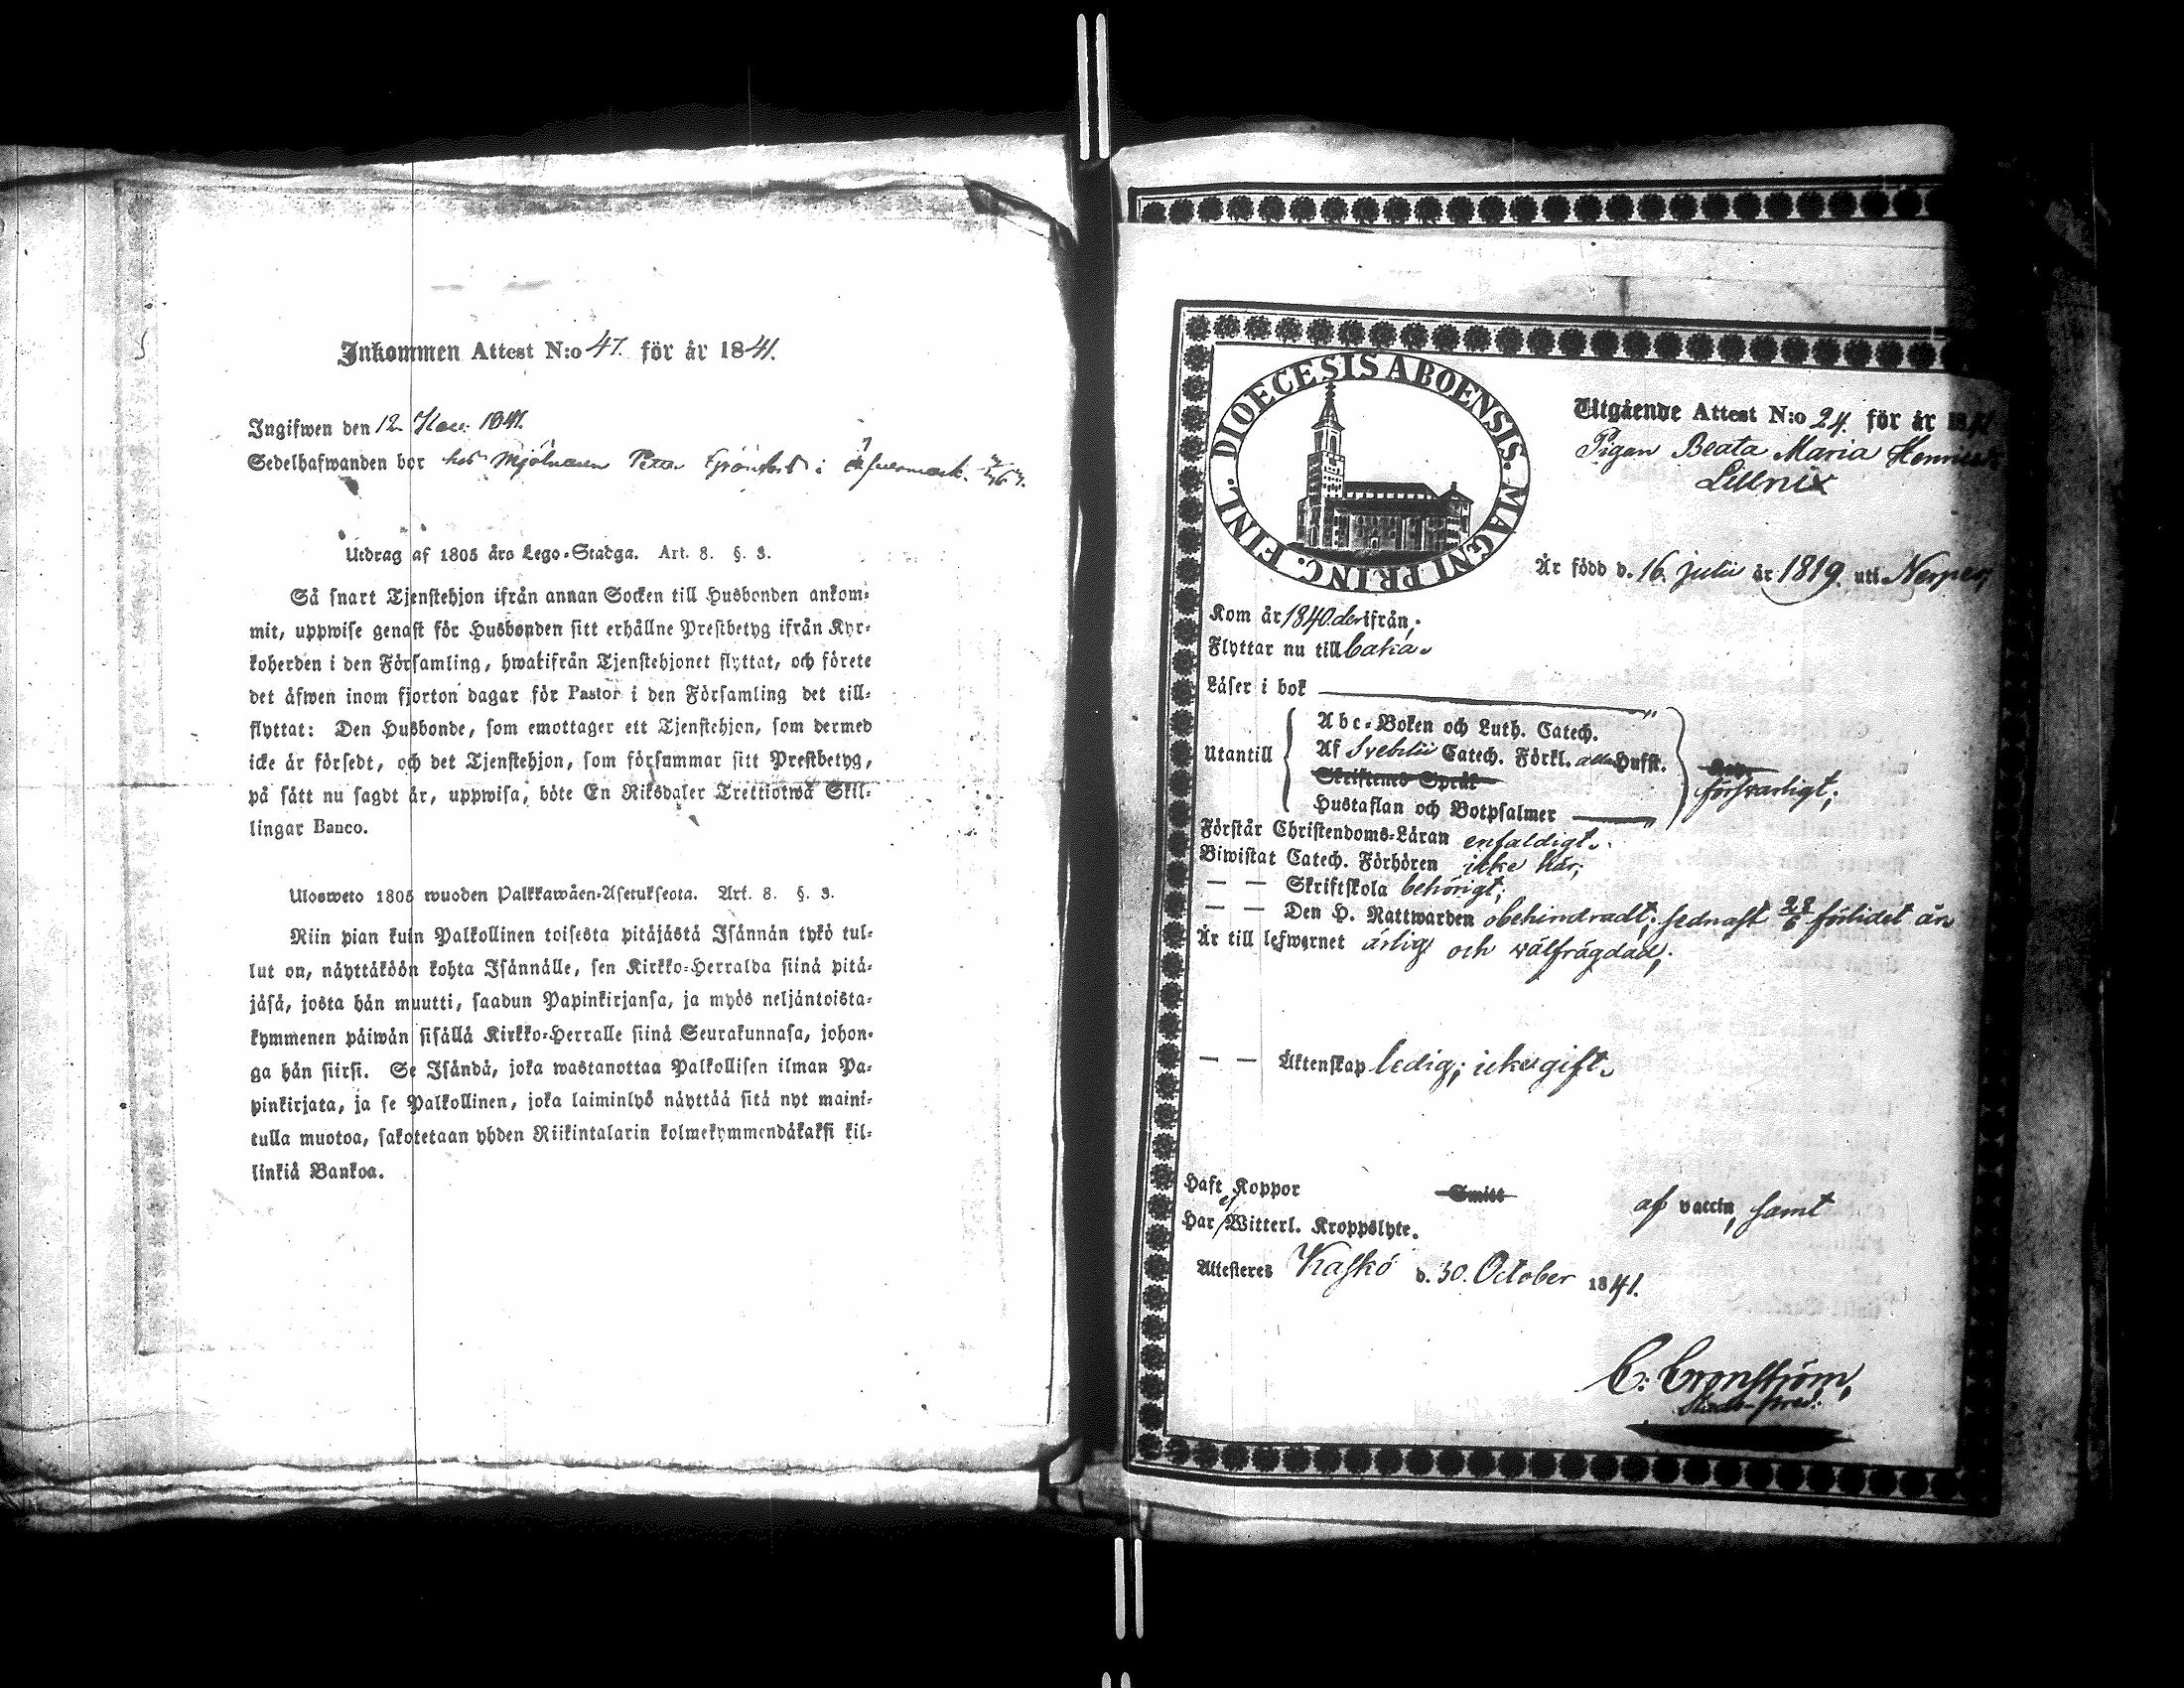 Inkommen Attest N:o 47. för år 1841.
Ingifwen den 12 Nov. 1841.
Sedelhafwanden bor hos Mjölnaren Petter Grönfors i Öfvermark.
Utdrag af 1805 års Lego-Stadga. Art. 8. §. 3.
Så snart Tjenstehjon ifrån annan Socken till Husbonden ankom-
mit, uppwise genast för Husbonden sitt erhållne Prestbetyg ifrån Kyr-
koherden i den Församling, hwarifrån Tjenstehjonet flyttat, och förete
det äfwen inom fjorton dagar för Pastor i den Församling det till-
flyttat: Den Husbonde, som emottager ett Tjenstehjon, som dermed
icke är försedt, och det Tjenstehjon, som försummar sitt Prestbetyg,
på sätt nu sagdt är, uppwisa, böte En Riksdaler Trettiotwå Skil-
lingar Banco.
Ulosweto 1805 wuoden Palkkawäen-Asetuksesta. Art. 8. §. 3.
Niin pian kuin Palkollinen toisesta pitäjästä Isännän tykö tul-
lut on, näyttäköön kohta Isännälle, sen Kirkko-Herralda siinä pitä-
jäsä, josta hän muutti, saadun Papinkirjansa, ja myös neljäntoista-
kymmenen päiwän sisällä Kirkko-Herralle siinä Seurakunnasa, johon-
ga hän siirsi. Se Isändä, joka wastanottaa Palkollisen ilman Pa-
pinkirjata, ja se Palkollinen, joka laiminlyö näyttää sitä nyt maini-
tulla muotoa, sakotetaan yhden Riikintalarin kolmekymmendäkaksi kil-
linkiä Bankoa.
DIOECESIS ABOENSIS. MAGNI PRINC. FINL.
Utgående Attest N:o 24. för år 1841
Pigan Beata Maria Henriks
Lillnix
Är född d. 16. Julii år 1819. uti Nerpes,
Kom år 1840. derifrån,
Flyttar nu till baka.
Läser i bok
Utantill
Abc-Boken och Luth. Catech.
Af Svebilii Catech. Förkl. Husst.
Skriftenes Språk
Hustaflan och Botpsalmer
försvarligt;
Förstår Christendoms-Läran enfaldigt.
Biwistat Catech. Förhören icke här;
— — Skriftskola behörigt;
— — Den H. Nattwarden obehindradt; sednast förlidet år.
Är till lefwernet ärlig och välfrägdad;
— — Äktenskap ledig; icke gift.
Haft Koppor Smitt af vaccin, samt
Har ej Witterl. Kroppslyte.
Attesteres Kaskö d. 30. October 1841.
C. Cronström,
Stads-pred.